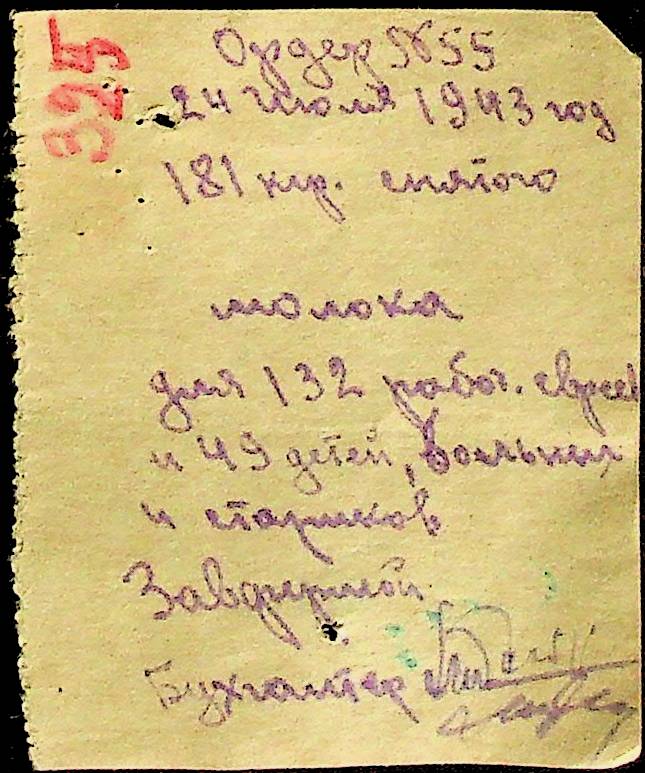 325
Ордер №55
24 июля 1943 год
181 кгр. снятого
молока
для 132 работ. еврее
и 49 детей, больных
и стариков
Завфермой
Бухгалтер